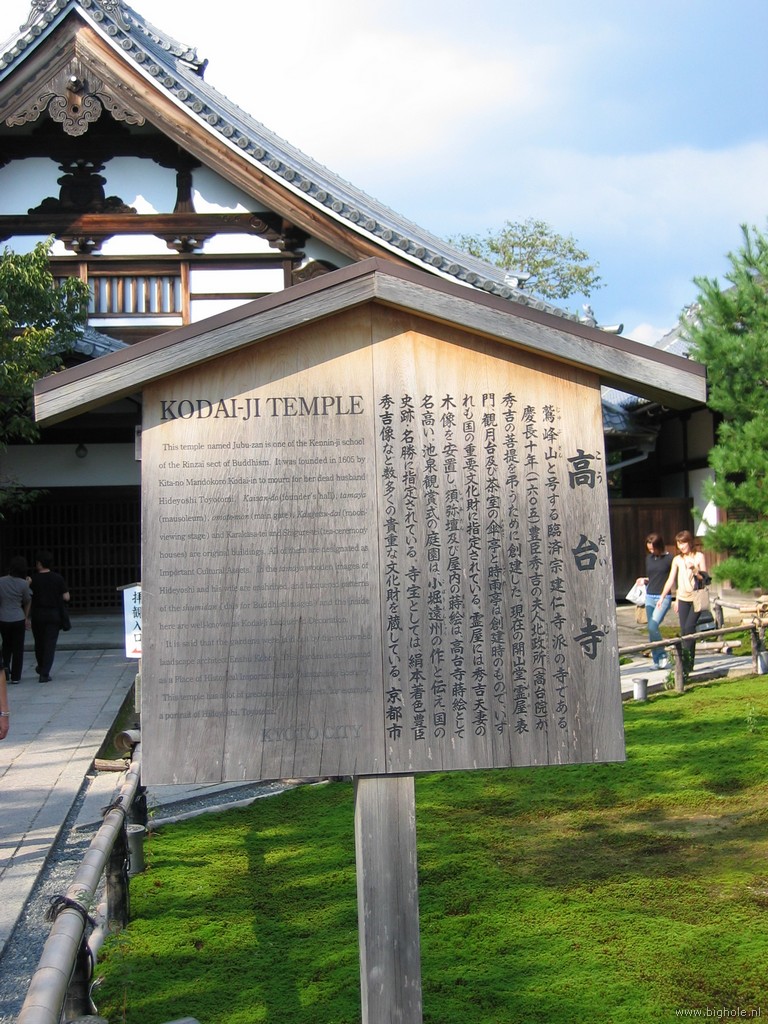 KODAI-JI TEMPLE
This temple named Jubu-zan is one of the Kennin-ji school
of the Rinzai sect of Buddhism. It was founded in 1605 by
Kita-no Mandokoro Kodai-in to mourn for her dead husband
Hideyoshi Toyotomi. Kaisan-do (founder's hall), tamaya
(mausoleum), omote-mon (main gate), Kangetsu-dai (moon-
viewing stage) and Karakasa-tei and Shigure-tei (tea-ceremony
houses) are original buildings. All of them are designated as
Important Cultural
In the tamaya wooden images of
Hideyoshi and his wife are enshrined and
of the shumidan (dais for Buddhist
here are well-known as Kodai-ji
It is said that the garden
landscape
as a Place of
This temple
a portrait of Hideyoshi
KYOTO CITY
高台寺
こう だい じ
鷲峰山と号する臨済宗建仁寺派の寺である。
じゅ ぶ ざん
慶長十年(一六〇五)豊臣秀吉の夫人北政所(高台院)が、
秀吉の菩提を弔うために創建した。現在の開山堂、霊屋、表
門、観月台及び茶室の傘亭と時雨亭は創建時のもので、いず
れも国の重要文化財に指定されている。霊屋には秀吉夫妻の
木像を安置し、須弥壇及び屋内の蒔絵は、高台寺蒔絵として
名高い。池泉観賞式の庭園は、小堀遠州の作と伝え国の
史跡・名勝に指定されている。寺宝としては、絹本着色豊臣
秀吉像など数多くの貴重な文化財を蔵している。 京都市
拝観入口
www.bighole.nl